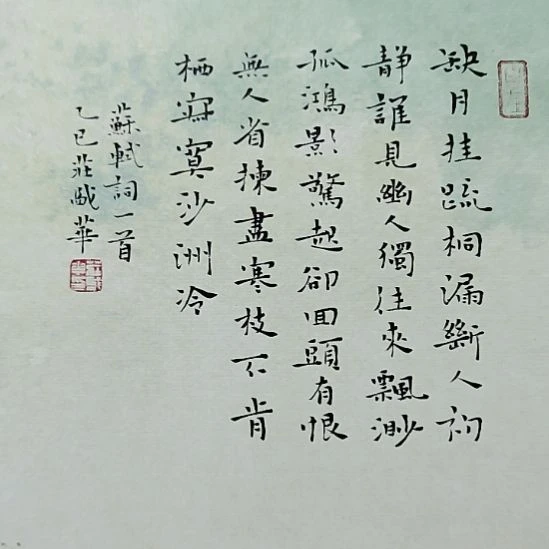 缺月挂疏桐漏斷人初
靜誰見幽人獨往來飄渺
孤鴻影驚起卻回頭有恨
無人省揀盡寒枝不肯
栖寂寞沙洲冷
蘇軾詞一首
乙巳莊戯華